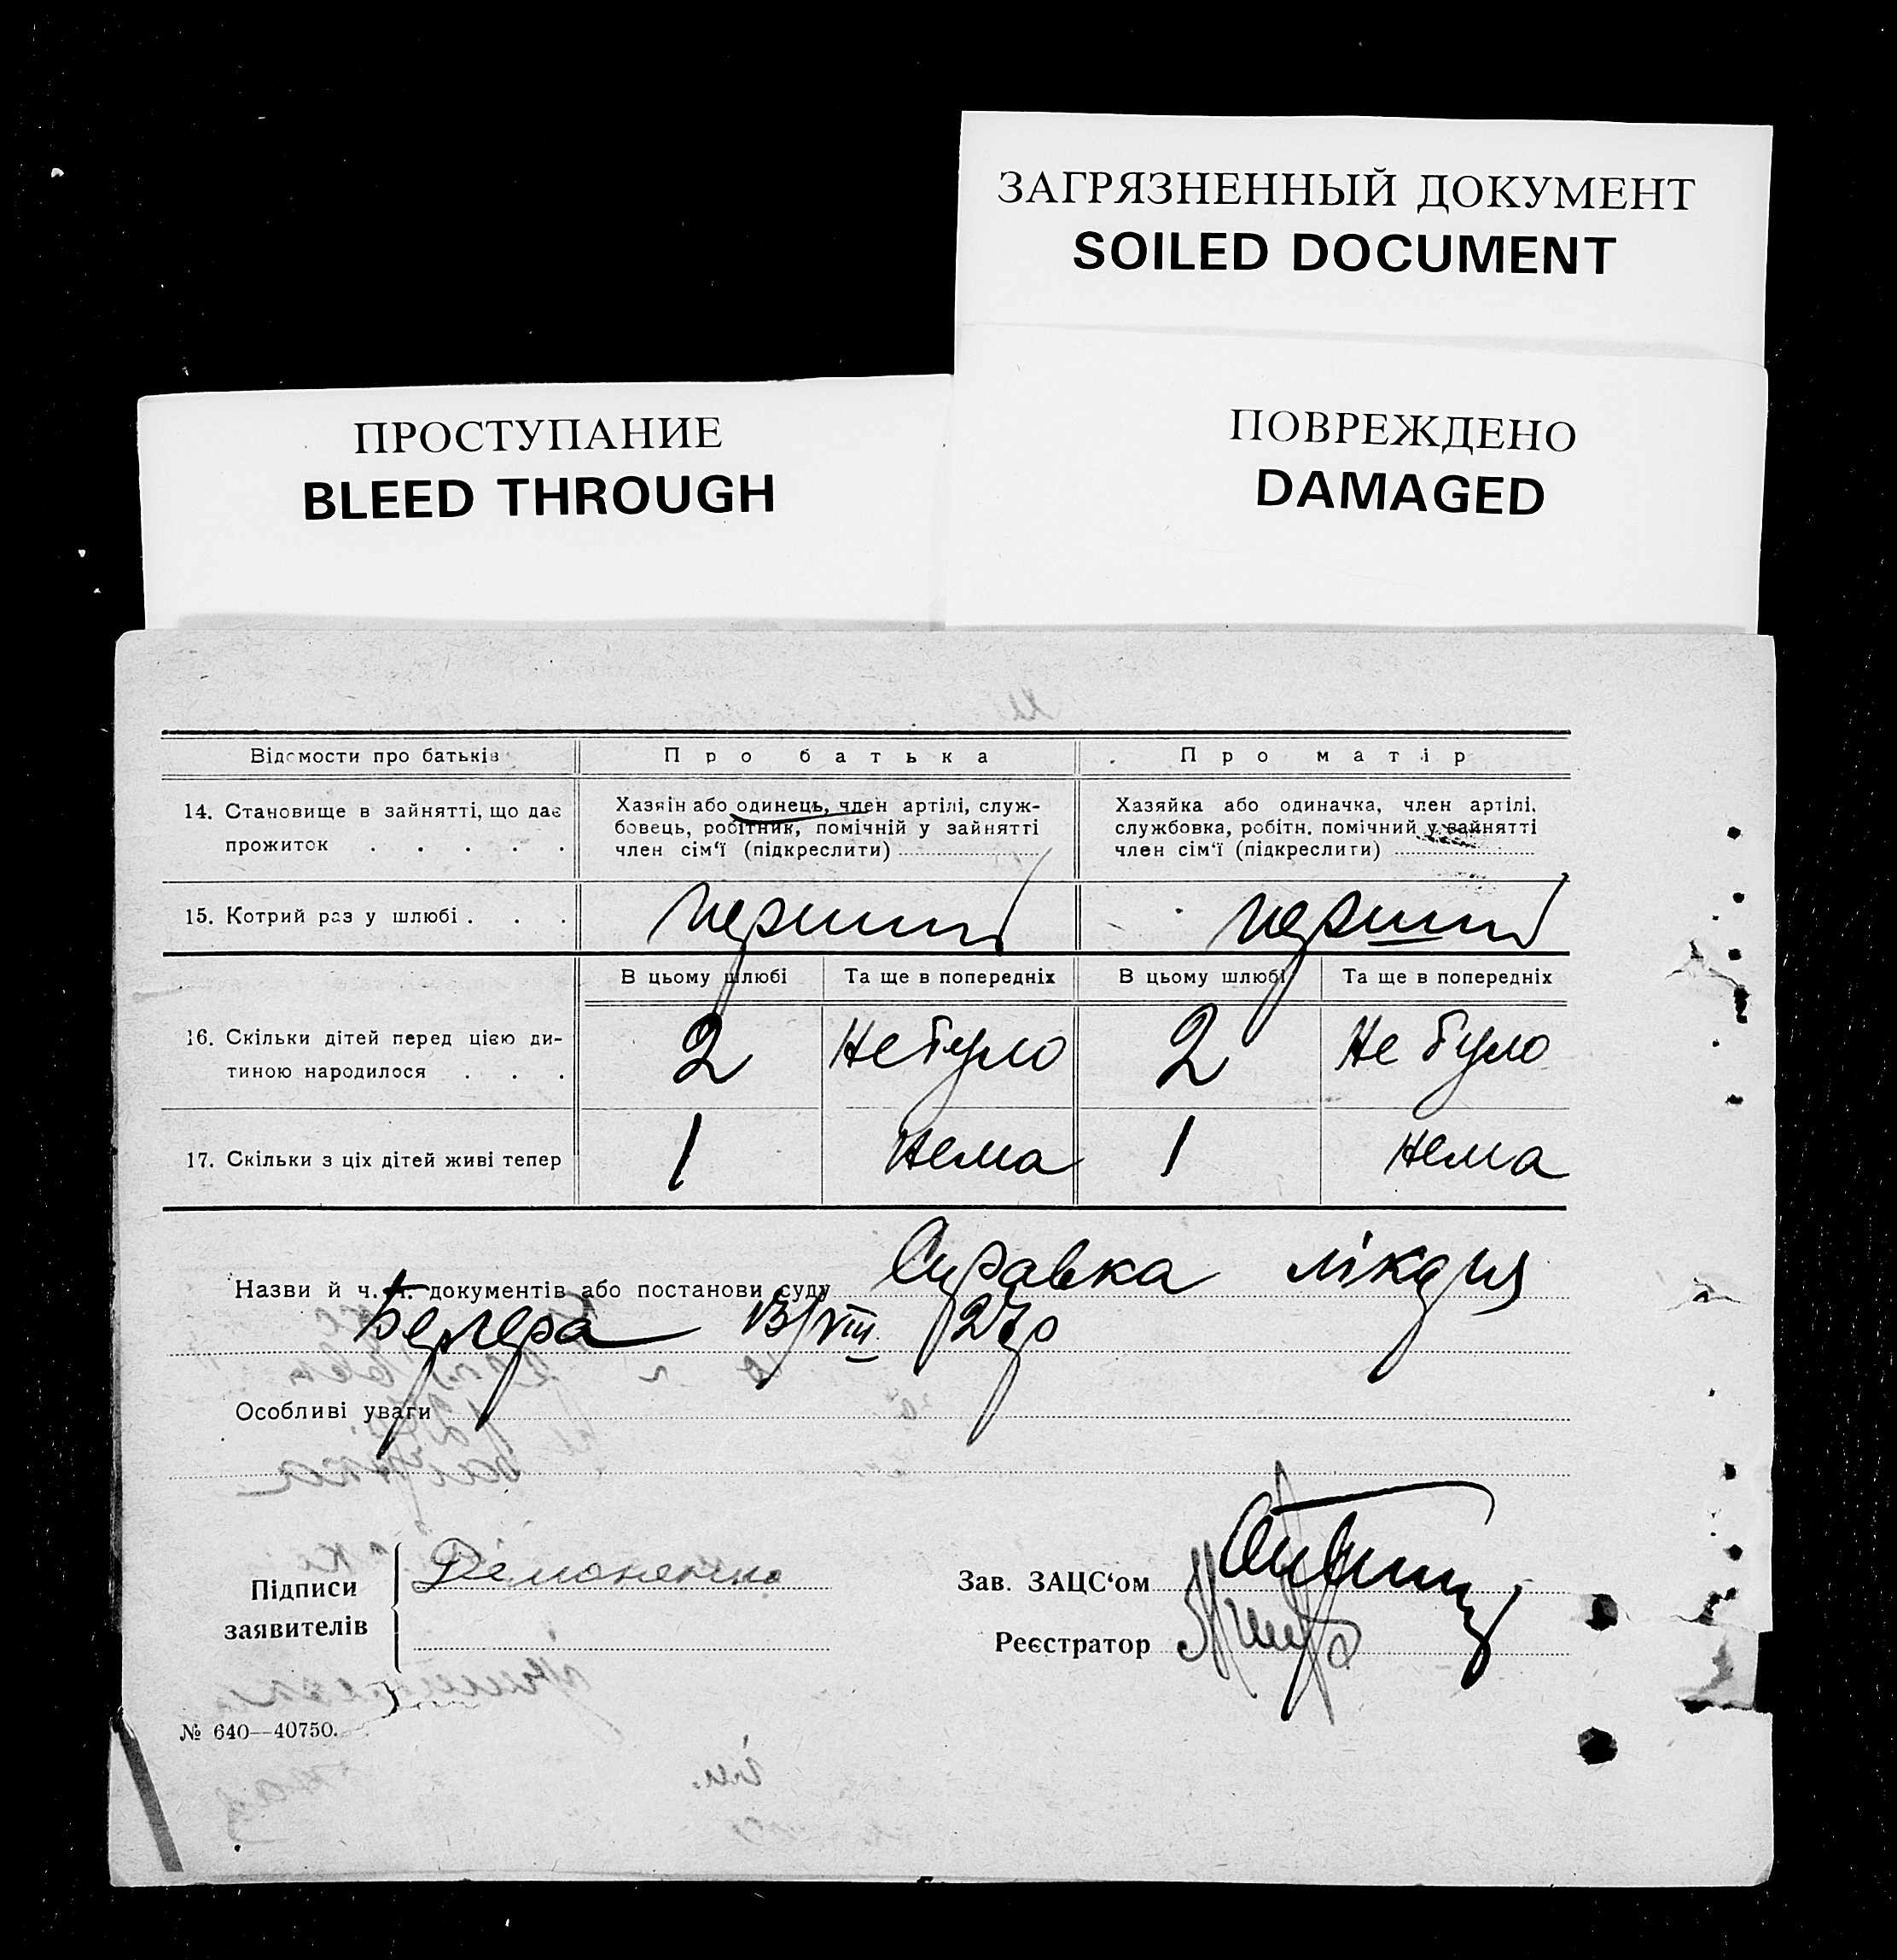 ЗАГРЯЗНЕННЫЙ ДОКУМЕНТ
SOILED DOCUMENT
ПРОСТУПАНИЕ
BLEED THROUGH
ПОВРЕЖДЕНО
DAMAGED
Відомости про батьків
Про батька
Про матір
14. Становище в зайнятті, що дає
прожиток . . . . .
Хазяін або одинець, член артілі, служ-
бовець, робітник, помічній у зайнятті
член сім‘ї (підкреслити)
Хазяйка або одиначка, член артілі,
службовка, робітн. помічний у зайнятті
член сім‘ї (підкреслити)
15. Котрий раз у шлюбі . . .
перший
перший
В цьому шлюбі
Та ще в попередніх
В цьому шлюбі
Та ще в попередніх
16. Скільки дітей перед цією ди-
тиною народилося . . .
2
Не було
2
Не було
17. Скільки з ціх дітей живі тепер
1
Нема
1
Нема
Назви й ч.ч. документів або постанови суду Справка лікаря
Бергера 13/VIII 27р
Особливі уваги
Підписи
заявителів
Зав. ЗАЦС‘ом
Реєстратор
№ 640—40750.